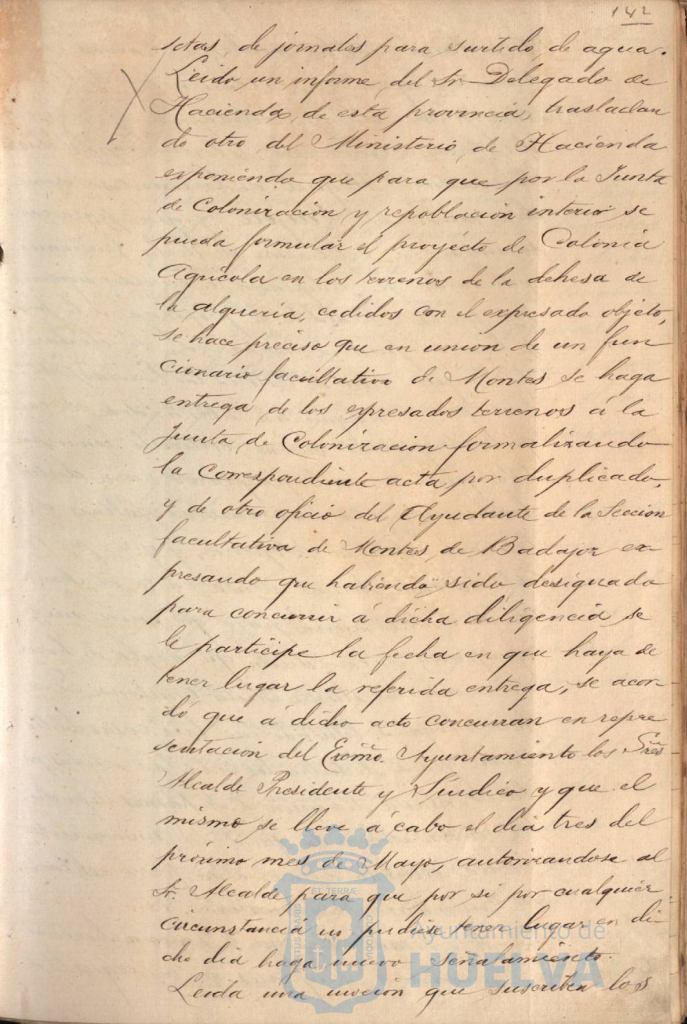 142
listas, de jornales para surtido de agua.
Leido un informe del Sr. Delegado de
Hacienda, de esta provincia, trasladan
do otro del Ministerio de Hacienda
exponiendo que para que por la Junta
de Colonizacion y repoblacion interior se
pueda formular el proyecto de Colonia
Agricola en los terrenos de la dehesa de
la alqueria, cedidos con el expresado objeto,
se hace preciso que en union de un fun
cionario facultativo de Montes se haga
entrega de los expresados terrenos á la
Junta de Colonizacion formalizando
la correspondiente acta por duplicado,
y de otro oficio del Ayudante de la Seccion
facultativa de Montes de Badajoz ex-
presando que habiendo sido designado
para concurrir á dicha diligencia se
le participe la fecha en que haya de
tener lugar la referida entrega, se acor-
dó que á dicho acto concurran en repre
sentacion del Excmo. Ayuntamiento los Sres
Alcalde Presidente y Sindico y que el
mismo se lleve á cabo el dia tres del
próximo mes de Mayo, autorizandose al
Sr. Alcalde para que por si por cualquier
circunstancia no pudiese tener lugar en di-
cho dia haga nuevo señalamiento.
Leida una mocion que suscriben los
Ayuntamiento de
HUELVA